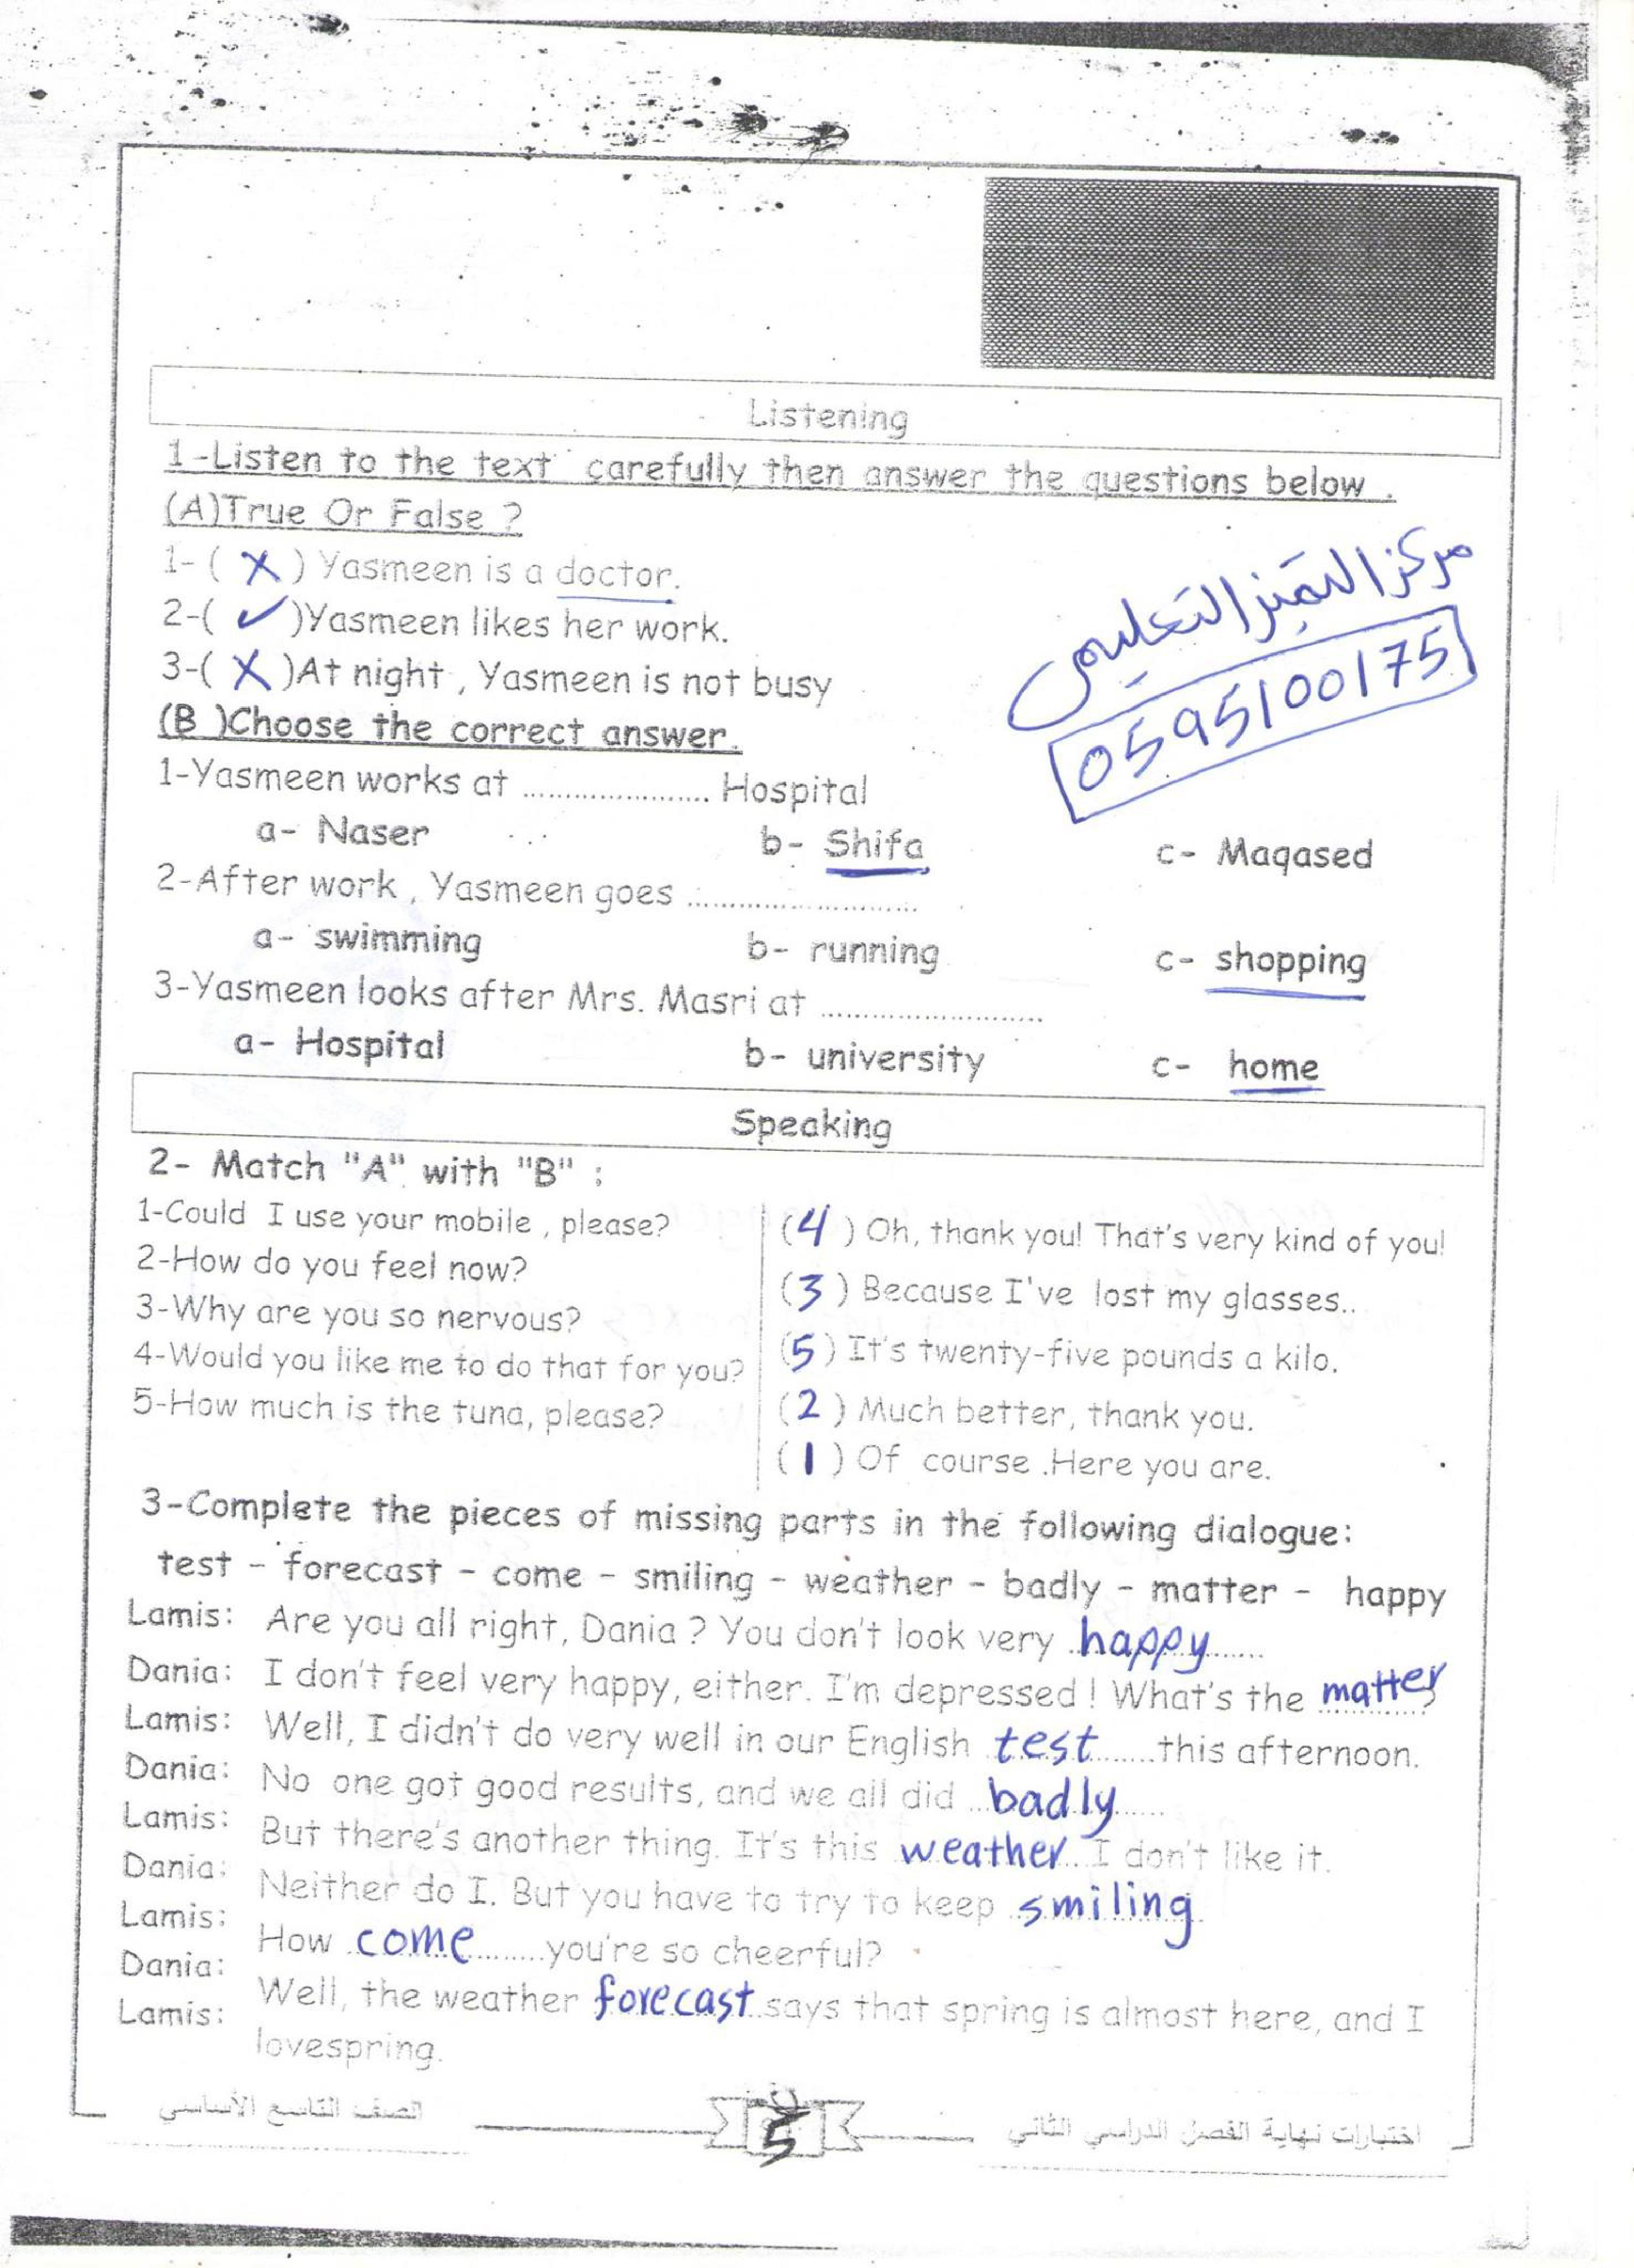 Listening
1-Listen to the text carefully then answer the questions below .
(A)True Or False ?
1- ( X ) Yasmeen is a doctor.
2-( ✓ )Yasmeen likes her work.
3-( X )At night , Yasmeen is not busy
مركز التميز التعليمي
0595100175
(B )Choose the correct answer.
1-Yasmeen works at .................... Hospital
a- Naser b- Shifa c- Maqased
2-After work , Yasmeen goes .........................
a- swimming b- running c- shopping
3-Yasmeen looks after Mrs. Masri at .........................
a- Hospital b- university c- home
Speaking
2- Match "A" with "B" :
1-Could I use your mobile , please? (4) Oh, thank you! That's very kind of you!
2-How do you feel now? (3) Because I've lost my glasses..
3-Why are you so nervous? (5) It's twenty-five pounds a kilo.
4-Would you like me to do that for you? (2) Much better, thank you.
5-How much is the tuna, please? (1) Of course .Here you are.
3-Complete the pieces of missing parts in the following dialogue:
test - forecast - come - smiling - weather - badly - matter - happy
Lamis: Are you all right, Dania ? You don't look very happy
Dania: I don't feel very happy, either. I'm depressed ! What's the matter?
Lamis: Well, I didn't do very well in our English test this afternoon.
Dania: No one got good results, and we all did badly
Lamis: But there's another thing. It's this weather. I don't like it.
Dania: Neither do I. But you have to try to keep smiling
Lamis: How come you're so cheerful?
Dania: Well, the weather forecast says that spring is almost here, and I
Lamis: lovespring.
اختبارات نهاية الفصل الدراسي الثاني
5
الصف التاسع الأساسي